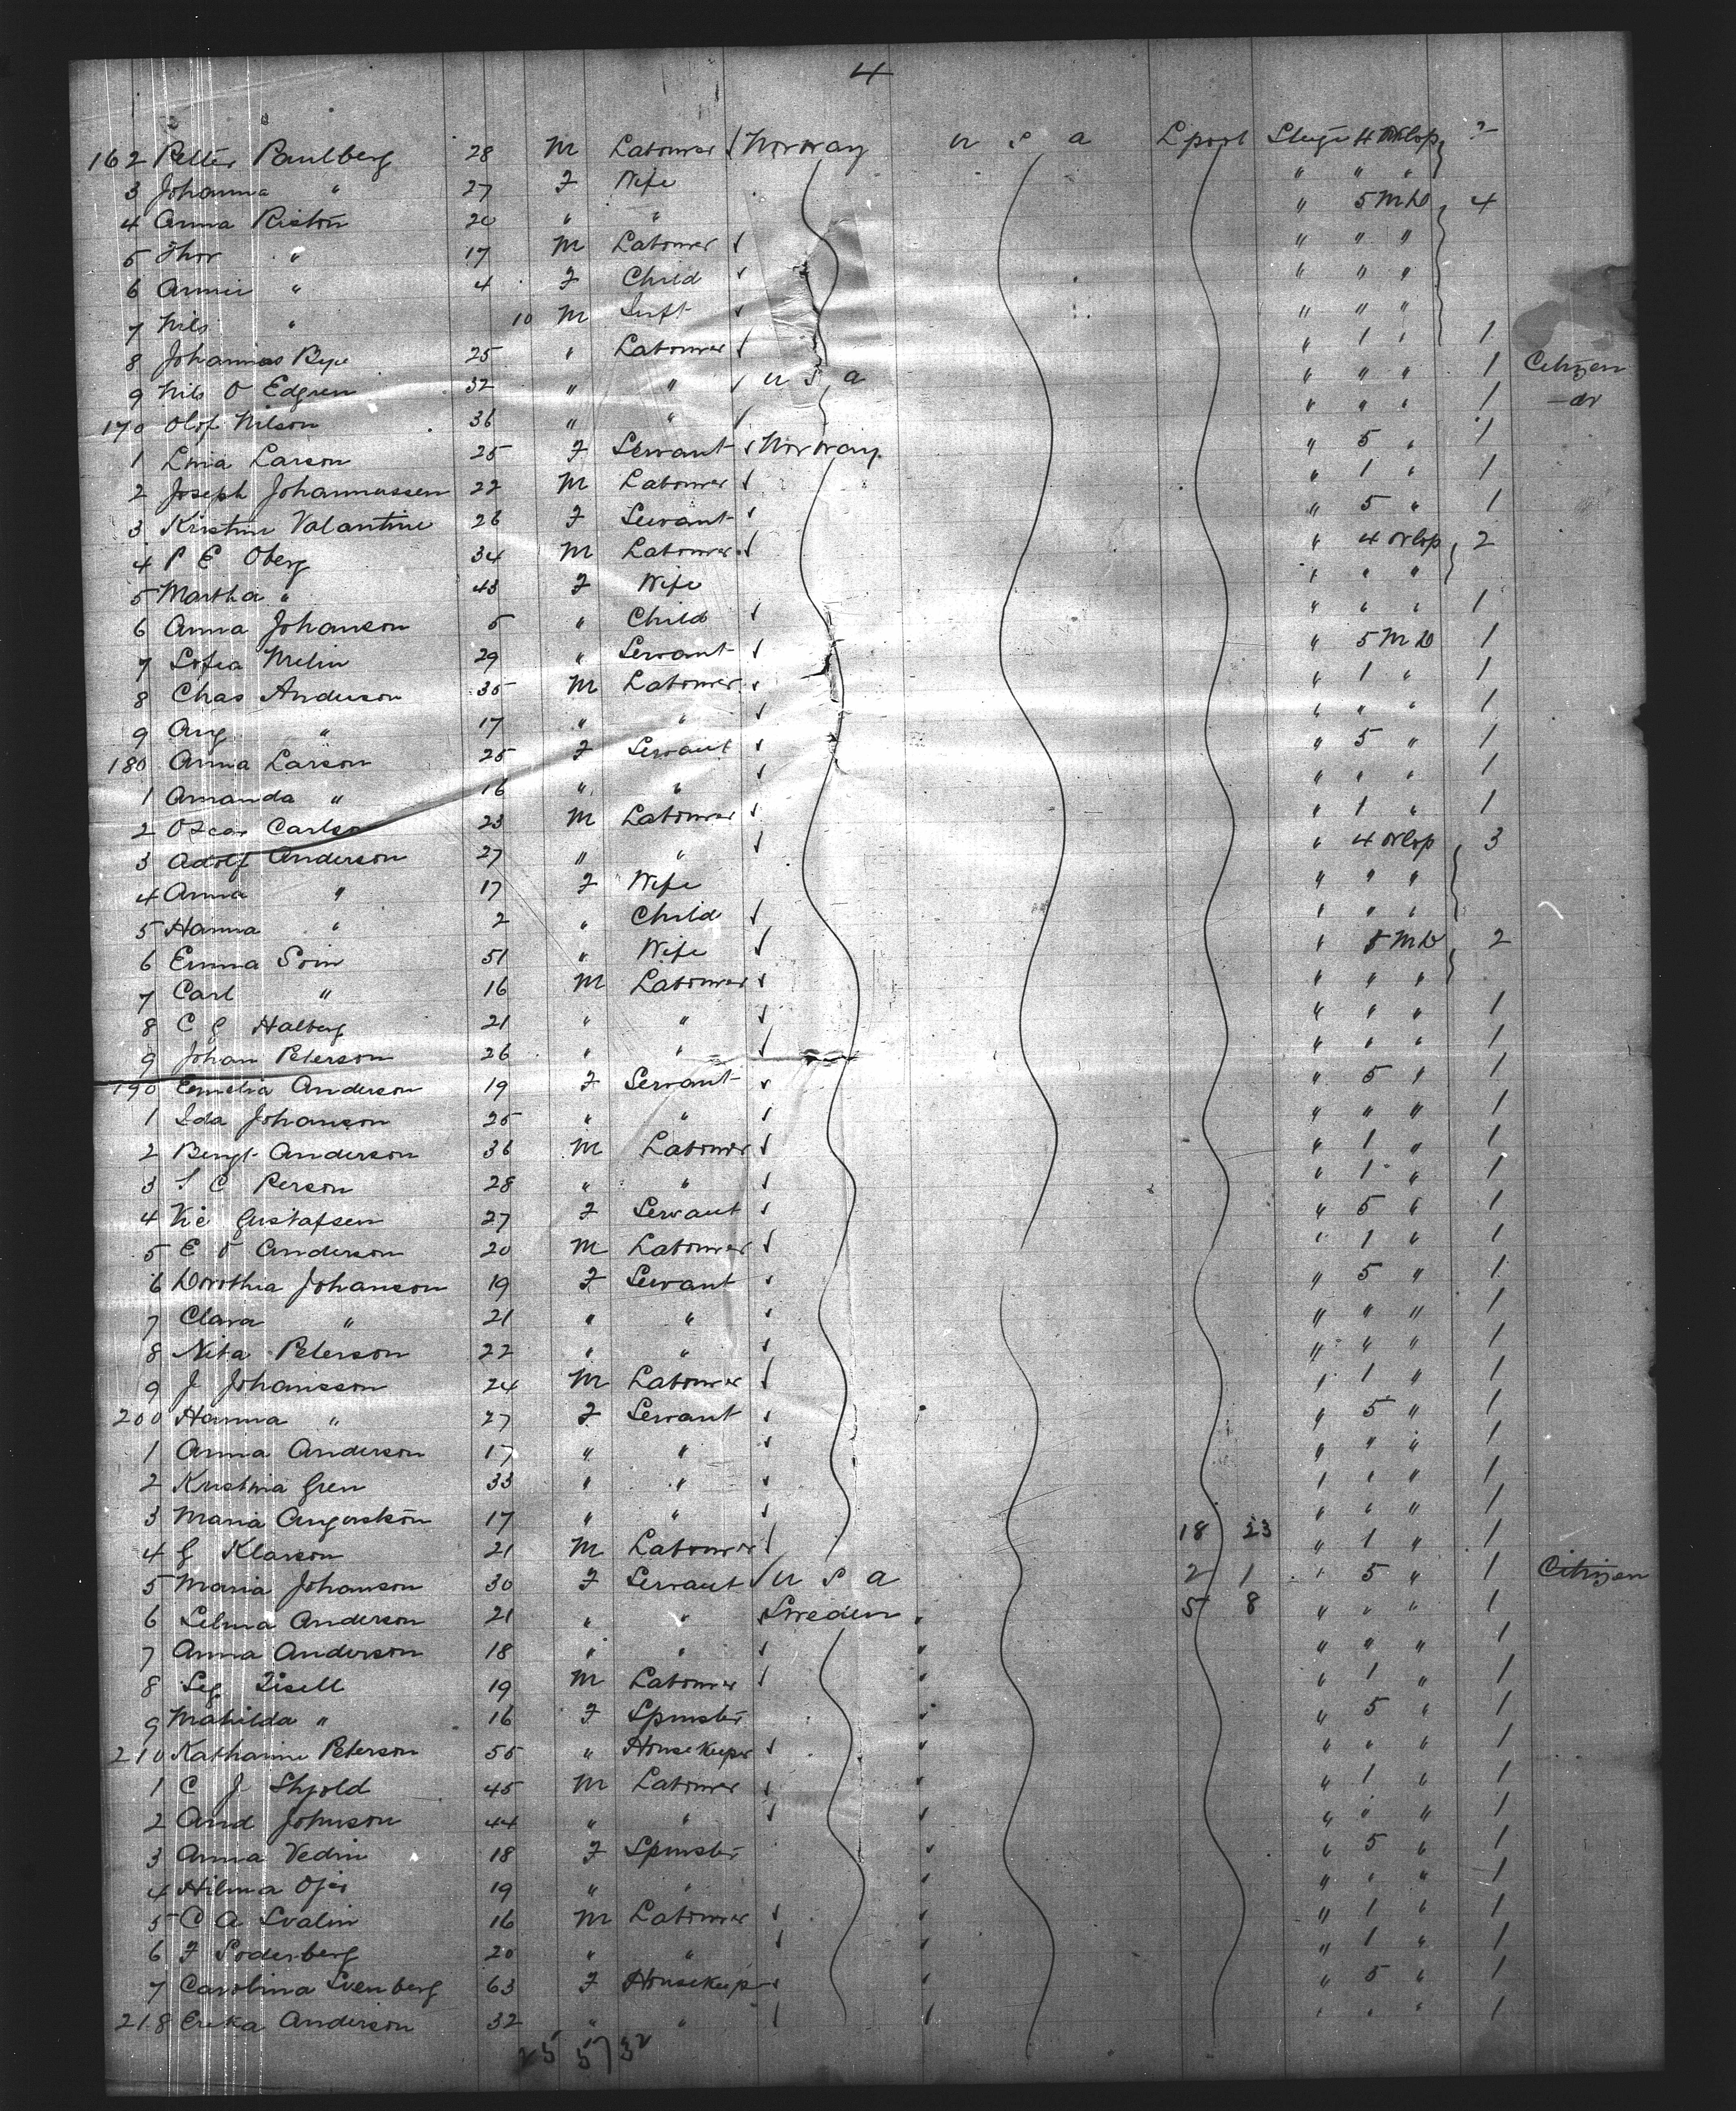 4
162 Petter Paulberg 28 M Labourer Norway U S A Lpool Stege 4 Orlop 2
3 Johanna " 27 F Wife " " "
4 Anna Riston 20 " " " 5 M D 4
5 Thor " 17 M Labourer " " "
6 Annie " 4 F Child " " "
7 Nils " 10 M Inft " " "
8 Johannes Bye 25 " Labourer " 1 " 1
9 Nils O Edgren 32 " " U S A " " " 1 Citizen
170 Olof Nilson 36 " " " " " 1 - do
1 Lina Larson 25 F Servant Norway " 5 " 1
2 Joseph Johannussen 22 M Labourer " 1 " 1
3 Kristine Valantine 26 F Servant " 5 " 1
4 P E Oberg 34 M Labourer " 4 Orlop 2
5 Martha " 43 F Wife " " "
6 Anna Johanson 5 " Child " " " 1
7 Sofia Melin 29 " Servant " 5 M D 1
8 Chas Anderson 35 M Labourer " 1 " 1
9 Aug " 17 " " " " " 1
180 Anna Larson 25 F Servant " 5 " 1
1 Amanda " 16 " " " " " 1
2 Oscar Carlson 23 M Labourer " 1 " 1
3 Adolf Anderson 27 " " " 4 Orlop 3
4 Anna " 17 F Wife " " "
5 Hanna " 2 " Child " " "
6 Emma Soin 51 " Wife " 5 M D 2
7 Carl " 16 M Labourer " " "
8 C G Halberg 21 " " " " " 1
9 Johan Peterson 26 " " " " " 1
190 Emelia Anderson 19 F Servant " 5 " 1
1 Ida Johanson 25 " " " " " 1
2 Bengt Anderson 36 M Labourer " 1 " 1
3 S C Person 28 " " " 1 " 1
4 Vic Gustafsen 27 F Servant " 5 " 1
5 E O Anderson 20 M Labourer " 1 " 1
6 Dorothia Johanson 19 F Servant " 5 " 1
7 Clara " 21 " " " " " 1
8 Neta Peterson 22 " " " " " 1
9 J Johansson 24 M Labourer " 1 " 1
200 Hanna " 27 F Servant " 5 " 1
1 Anna Anderson 17 " " " " " 1
2 Kristina Gren 33 " " " " " 1
3 Maria Angerström 17 " " " " " 1
4 G Klarson 21 M Labourer 18 23 " 1 " 1
5 Maria Johanson 30 F Servant U S A 2 1 " 5 " 1 Citizen
6 Selma Anderson 21 " " Sweden 5 8 " " " 1
7 Anna Anderson 18 " " " " " 1
8 Seg Zisell 19 M Labourer " 1 " 1
9 Mathilda " 16 F Spinster " 5 " 1
210 Katharine Peterson 55 " Housekeeper " " " 1
1 C J Shjold 45 M Labourer " 1 " 1
2 And Johnson 44 " " " " " 1
3 Anna Vedin 18 F Spinster " 5 " 1
4 Hilma 19 " " " " " 1
5 C A Svalin 16 M Labourer " 1 " 1
6 F Soderberg 20 " " " 1 " 1
7 Carolina Svenberg 63 F Housekeep " 5 " 1
218 Ereka Anderson 32 " " " " " 1
25 57 32